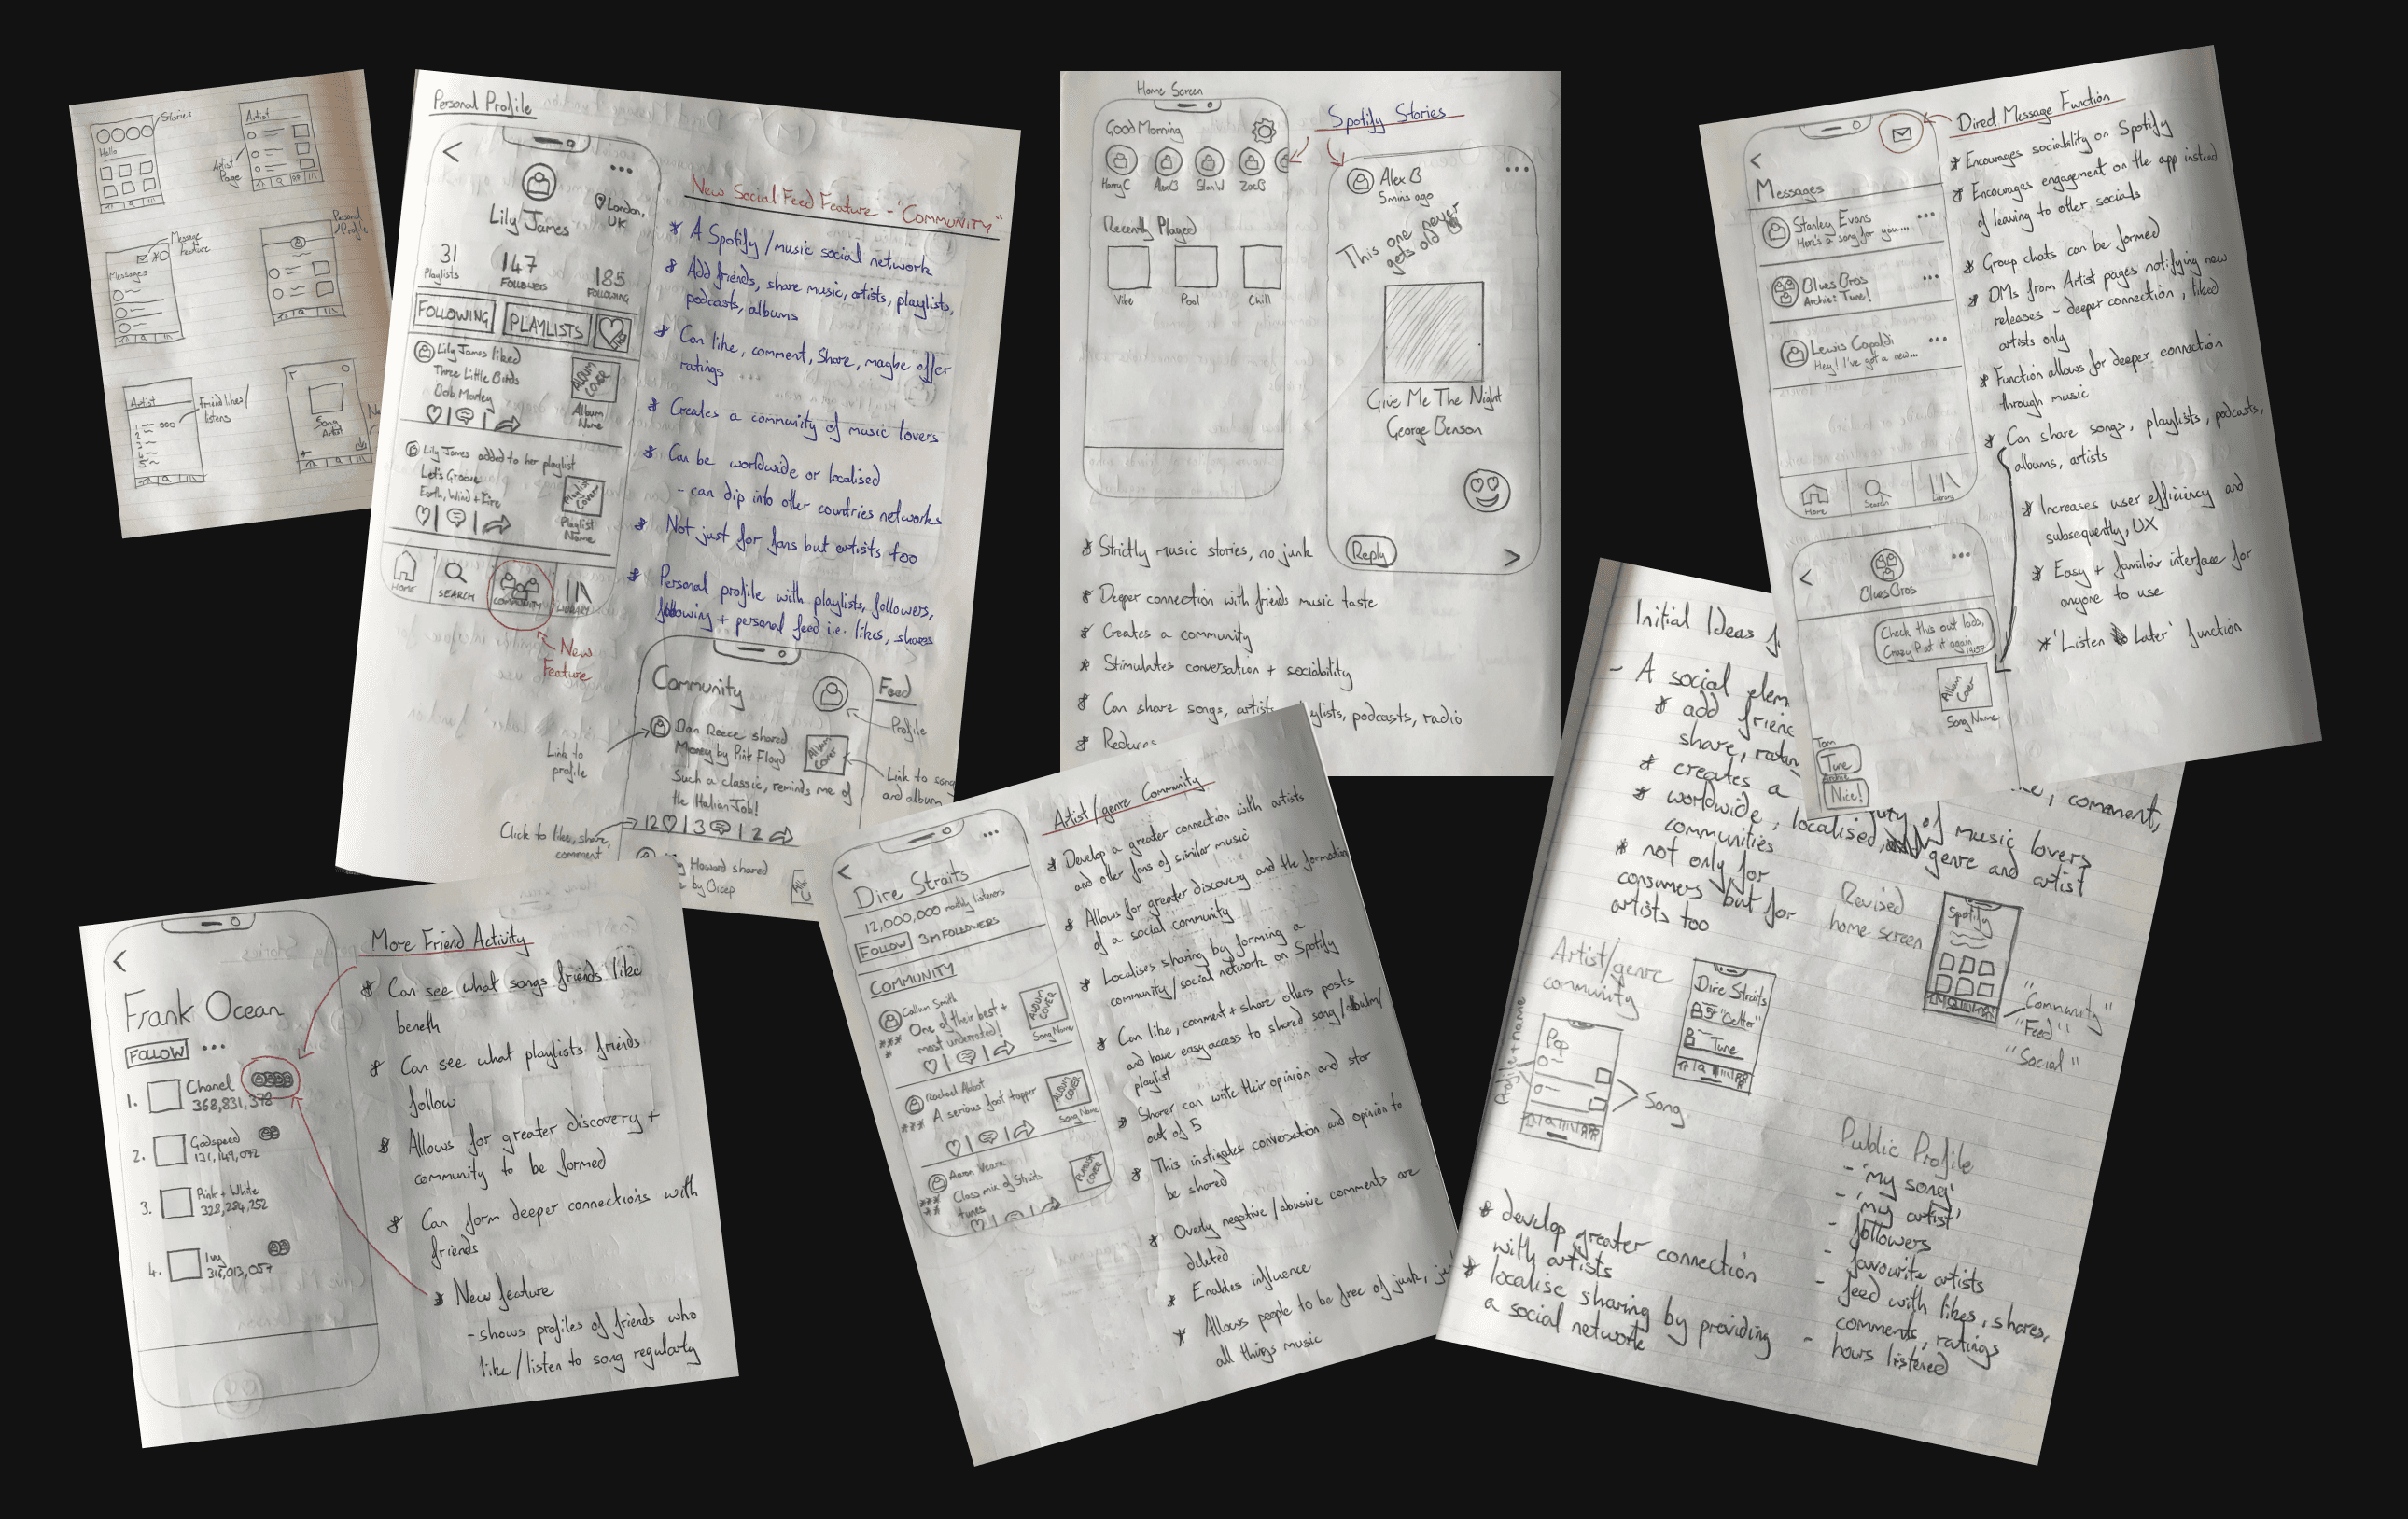 Stories
Hello
Artist
Artist
Page
Message
Feature
Messages
Personal
Profile
Artist
Friend likes/
listens
Song
Artist
Personal Profile
Lily James
London,
UK
31
Playlists
147
FOLLOWERS
185
FOLLOWING
FOLLOWING
PLAYLISTS
Lily James liked
Three Little Birds
Bob Marley
ALBUM
COVER
Album
Name
Lily James added to her playlist
Let's Groove
Earth, Wind + Fire
Playlist
Cover
Playlist
Name
HOME
SEARCH
COMMUNITY
LIBRARY
New
Feature
New Social Feed Feature - "COMMUNITY"
* A Spotify/music social network
* Add friends, share music, artists, playlists,
podcasts, albums
* Can like, comment, share, maybe offer
ratings
* Creates a community of music lovers
* Can be worldwide or localised
- can dip into other countries networks
* Not just for fans but artists too
* Personal profile with playlists, followers,
following + personal feed i.e. likes, shares
Community
Feed
Profile
Dan Reece shared
Money by Pink Floyd
Such a classic, reminds me of
the Italian Job!
Album
Cover
Link to
profile
Link to song
and album
12 | 3 | 2
Click to like, share,
comment
Howard shared
by Bicep
Home Screen
Good Morning
Harry C
Alex B
Stan W
Zac B
Recently Played
Vibe
Pool
Chill
Spotify Stories
Alex B
5 mins ago
This one never
gets old
Give Me The Night
George Benson
Reply
* Strictly music stories, no junk
* Deeper connection with friends music taste
* Creates a community
* Stimulates conversation + sociability
* Can share songs, artists, ylists, podcasts, radio
Direct Message Function
Messages
Stanley Evans
Here's a song for you....
Blues Bros
Archie: Tune!
Lewis Capaldi
Hey! I've got a new...
Home
Search
Library
* Encourages sociability on Spotify
* Encourages engagement on the app instead
of leaving to other socials
* Group chats can be formed
* DMs from Artist pages notifying new
releases - deeper connection, liked
artists only
* Function allows for deeper connection
through music
* Can share songs, playlists, podcasts,
albums, artists
* Increases user efficiency and
subsequently, UX
* Easy + familiar interface for
anyone to use
* 'Listen Later' function
Blues Bros
Check this out lads,
Crazy P at it again
Album
Cover
Song Name
Tom
Tune
Archie
Nice!
More Friend Activity
Frank Ocean
FOLLOW
1.
Chanel
368,831,378
2.
Godspeed
131,149,092
3.
Pink + White
328,284,252
4.
Ivy
316,013,057
* Can see what songs friends like
beneth
* Can see what playlists friends
follow
* Allows for greater discovery +
community to be formed
* Can form deeper connections with
friends
* New feature
- shows profiles of friends who
like/listen to song regularly
Artist/genre Community
Dire Straits
12,000,000 monthly listeners
FOLLOW
3M FOLLOWERS
COMMUNITY
Callum Smith
One of their best +
most underrated!
ALBUM
COVER
Song Name
Rachael Abbot
A serious foot tapper
ALBUM
COVER
Song Name
Aaron
Class mix of Straits
tunes
COVER
* Develop a greater connection with artists
and other fans of similar music
* Allows for greater discovery and the formation
of a social community
* Localises sharing by forming a
community/social network on Spotify
* Can like, comment + share others posts
and have easy access to shared song/album/
playlist
* Sharer can write their opinion and star
out of 5
* This instigates conversation and opinion to
be shared
* Overly negative/abusive comments are
deleted
* Enables influence
* Allows people to be free of junk,
all things music
Initial Ideas
- A social elem
* add frien
share, ratin
comment,
* creates a
uty of music lovers
* worldwide, localised, genre and artist
communities
* not only for
consumers but for
artists too
Revised
home screen
Spotify
"Community"
"Feed"
"Social"
Artist/genre
community
Profile + name
Pop
Song
Dire Straits
"Better"
Tune
* develop greater connection
with artists
* localise sharing by providing
a social network
Public Profile
- 'my song'
- 'my artist'
- followers
- favourite artists
- feed with likes, shares,
comments, ratings
- hours listened